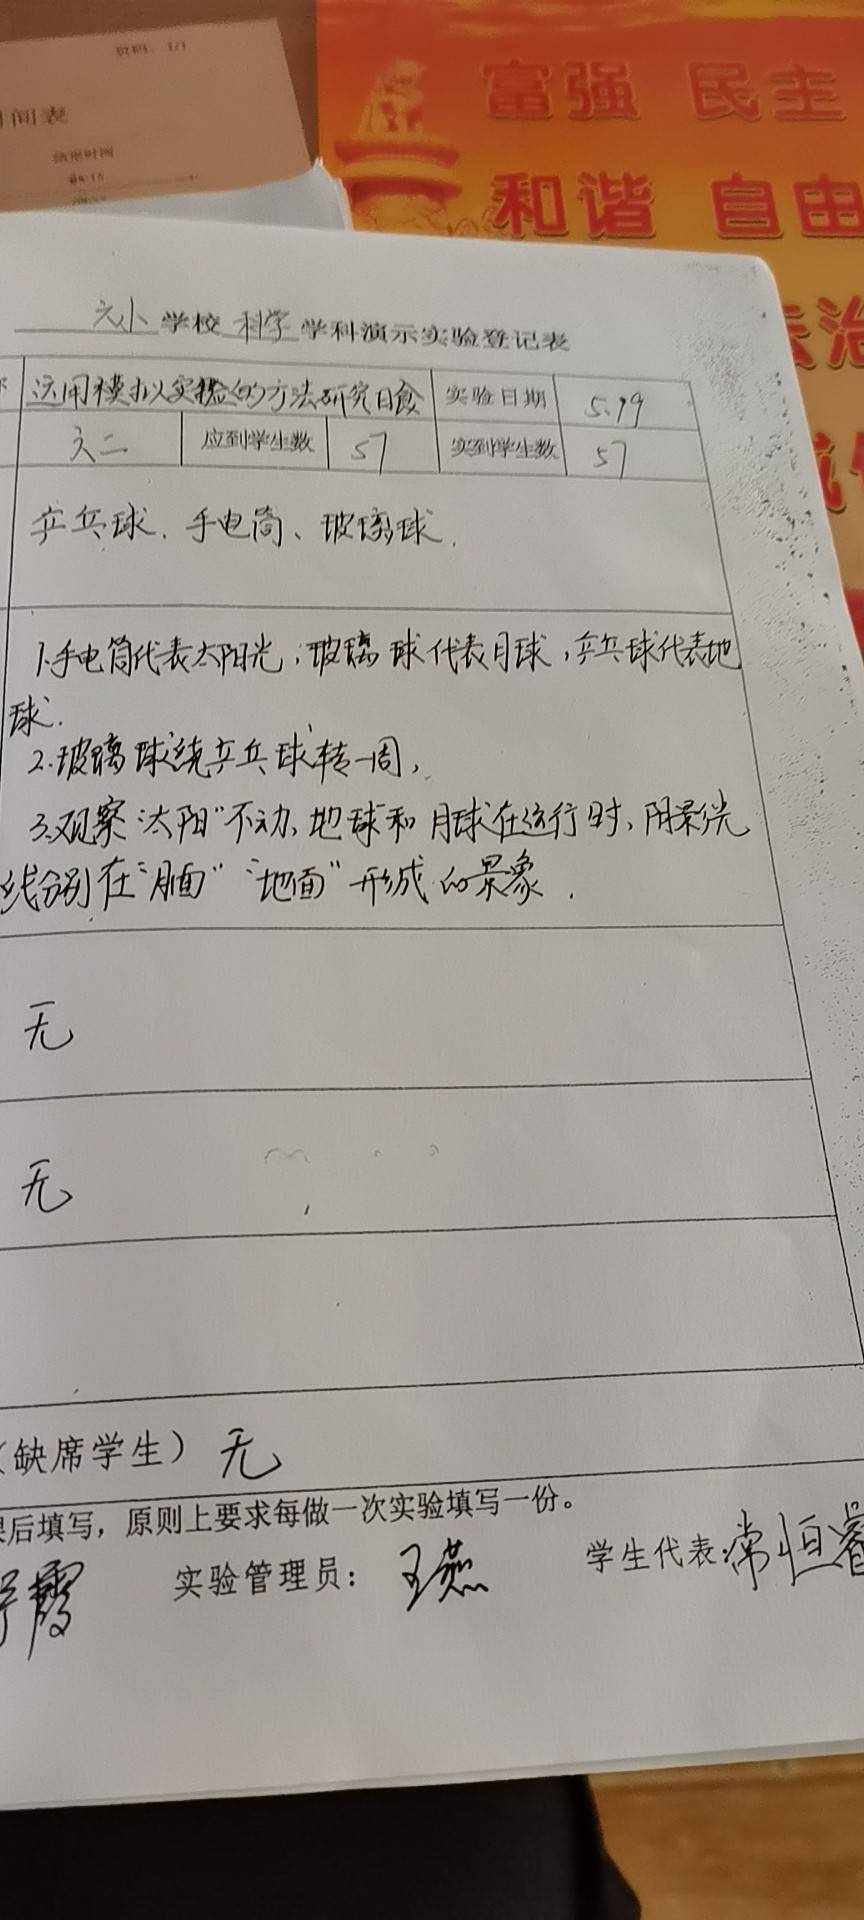 页码：1/1
时间表
富强 民主
和谐 自由
法治
六小学校科学学科演示实验登记表
运用模拟实验的方法研究日食 实验日期 5.19
六二 应到学生数 57 实到学生数 57
乒乓球、手电筒、玻璃球.
1.手电筒代表太阳光，玻璃球代表月球，乒乓球代表地
球.
2.玻璃球绕乒乓球转一周，
3.观察“太阳”不动，地球和月球在运行时，阴影光
线分别在“月面”“地面”形成的景象.
无
无
（缺席学生）无
课后填写，原则上要求每做一次实验填写一份。
霞 实验管理员：王燕 学生代表：常恒睿